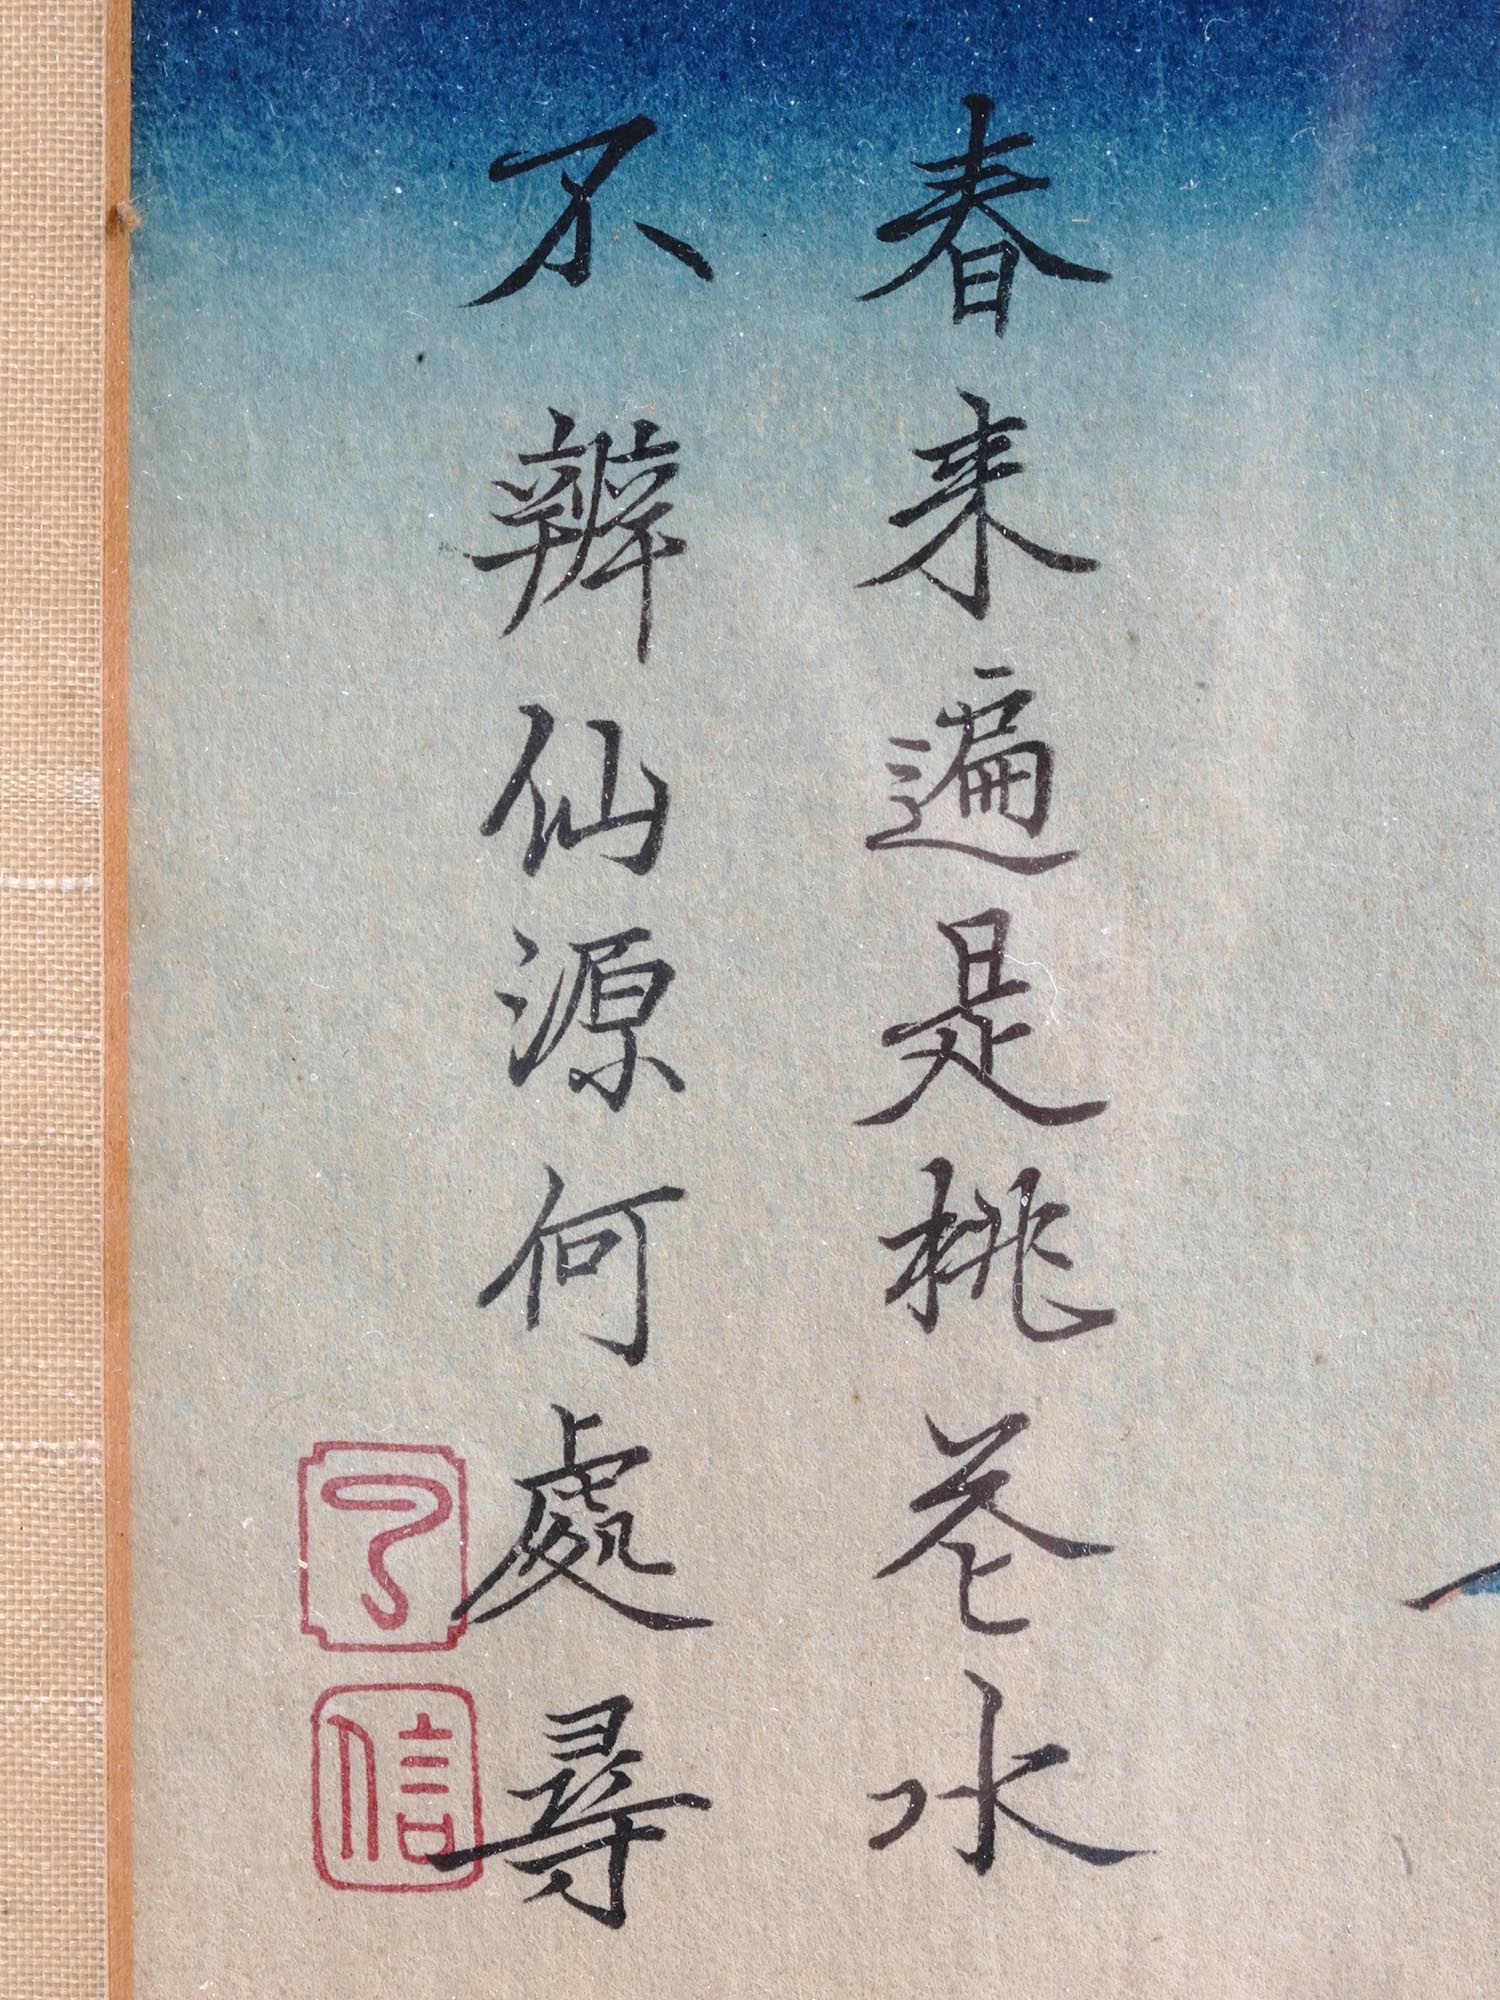 春来遍是桃花水
不辨仙源何處尋
了
信